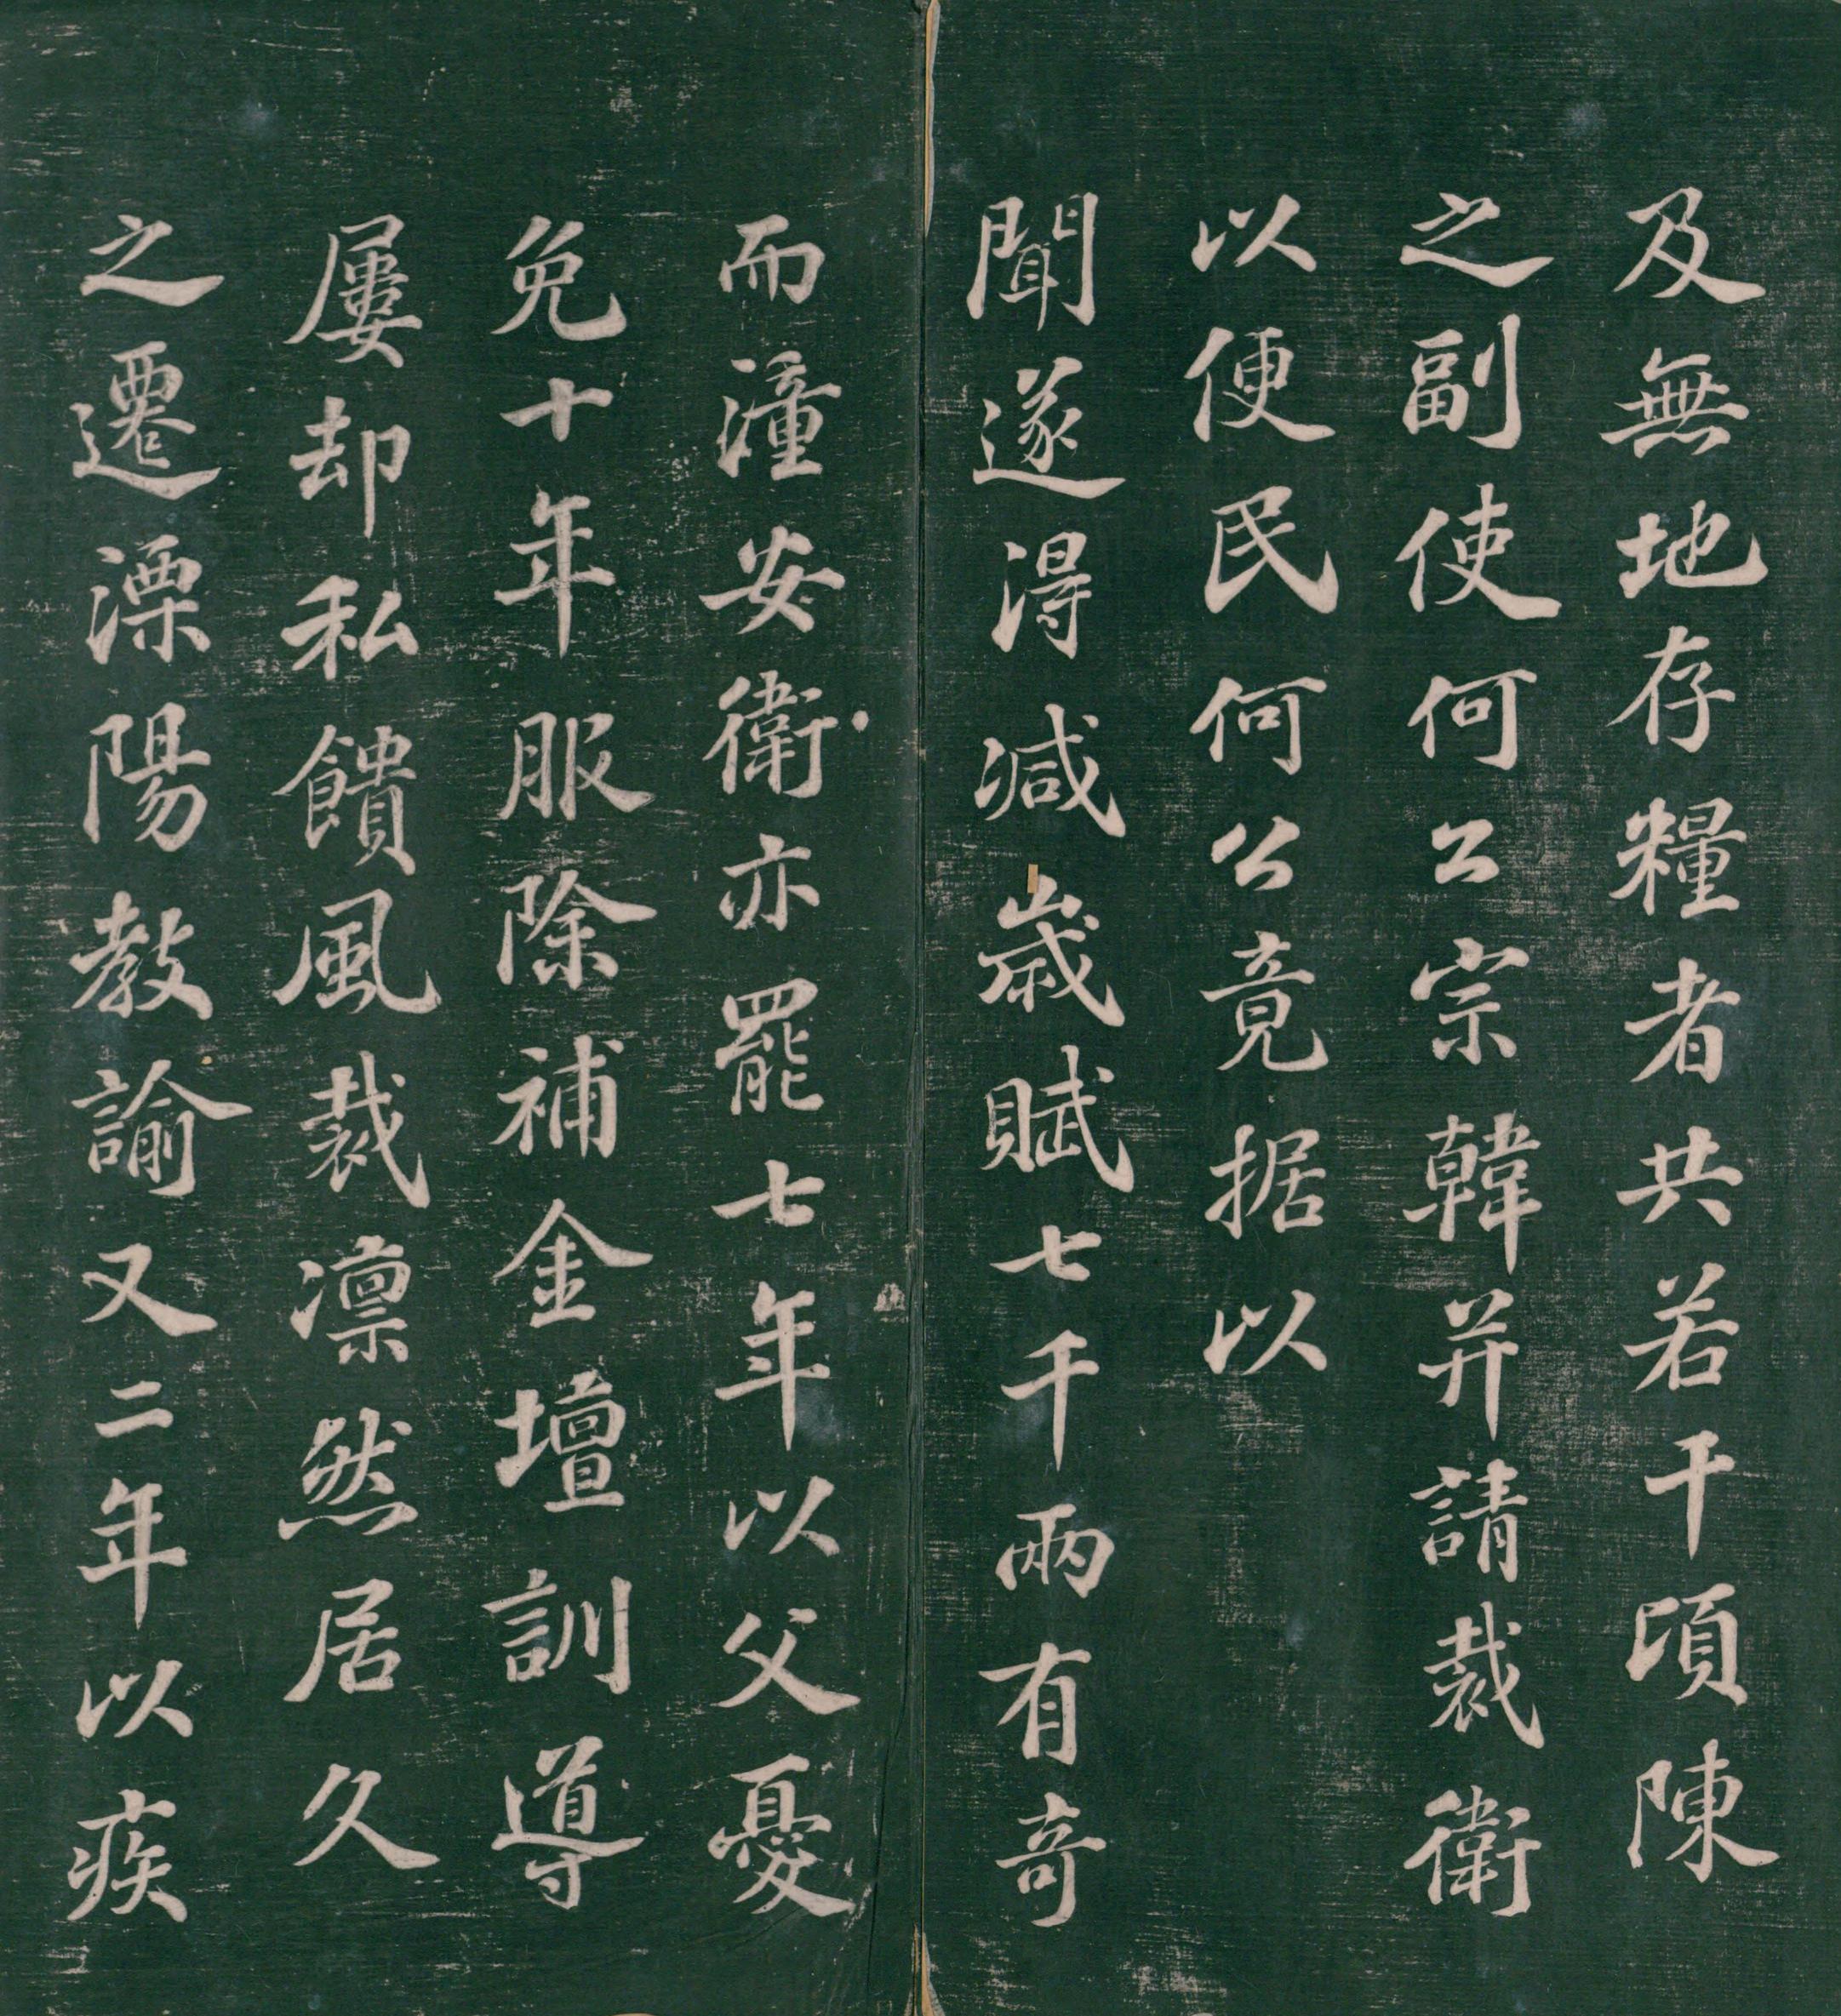 及無地存糧者共若干頃陳
之副使何公宗韓并請裁衛
以便民何公竟据以
聞遂得減歲賦七千兩有奇
而潼安衛亦罷七年以父憂
免十年服除補金壇訓導
屢却私饋風裁凛然居久
之遷溧陽教諭又二年以疾